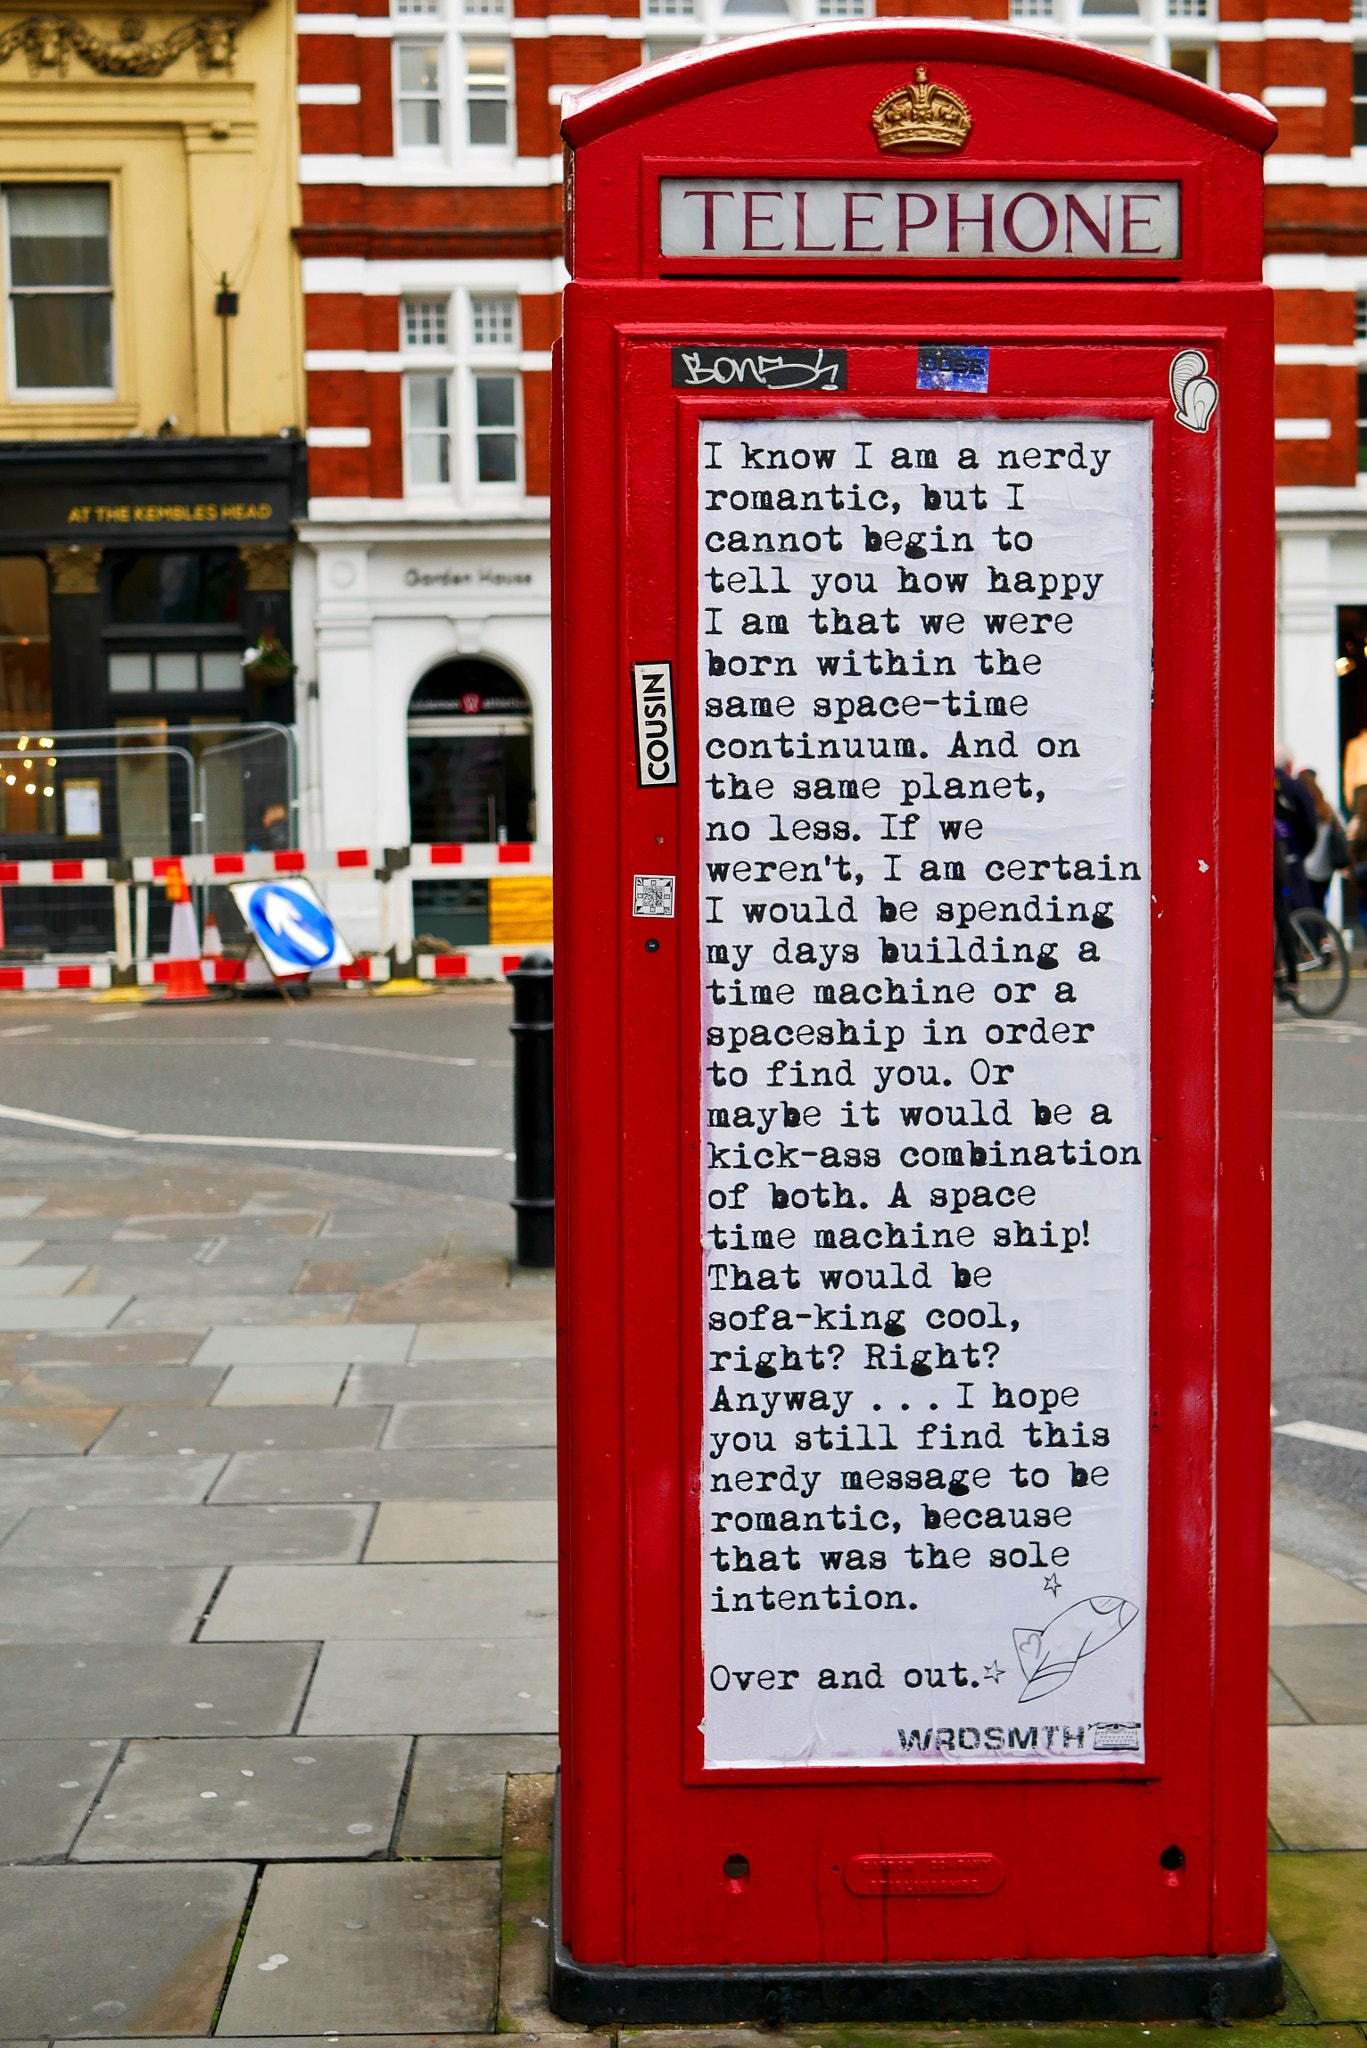 TELEPHONE
AT THE KEMBLES HEAD
Garden House
COUSIN
I know I am a nerdy
romantic, but I
cannot begin to
tell you how happy
I am that we were
born within the
same space-time
continuum. And on
the same planet,
no less. If we
weren't, I am certain
I would be spending
my days building a
time machine or a
spaceship in order
to find you. Or
maybe it would be a
kick-ass combination
of both. A space
time machine ship!
That would be
sofa-king cool,
right? Right?
Anyway . . . I hope
you still find this
nerdy message to be
romantic, because
that was the sole
intention.
Over and out.
WRDSMTH